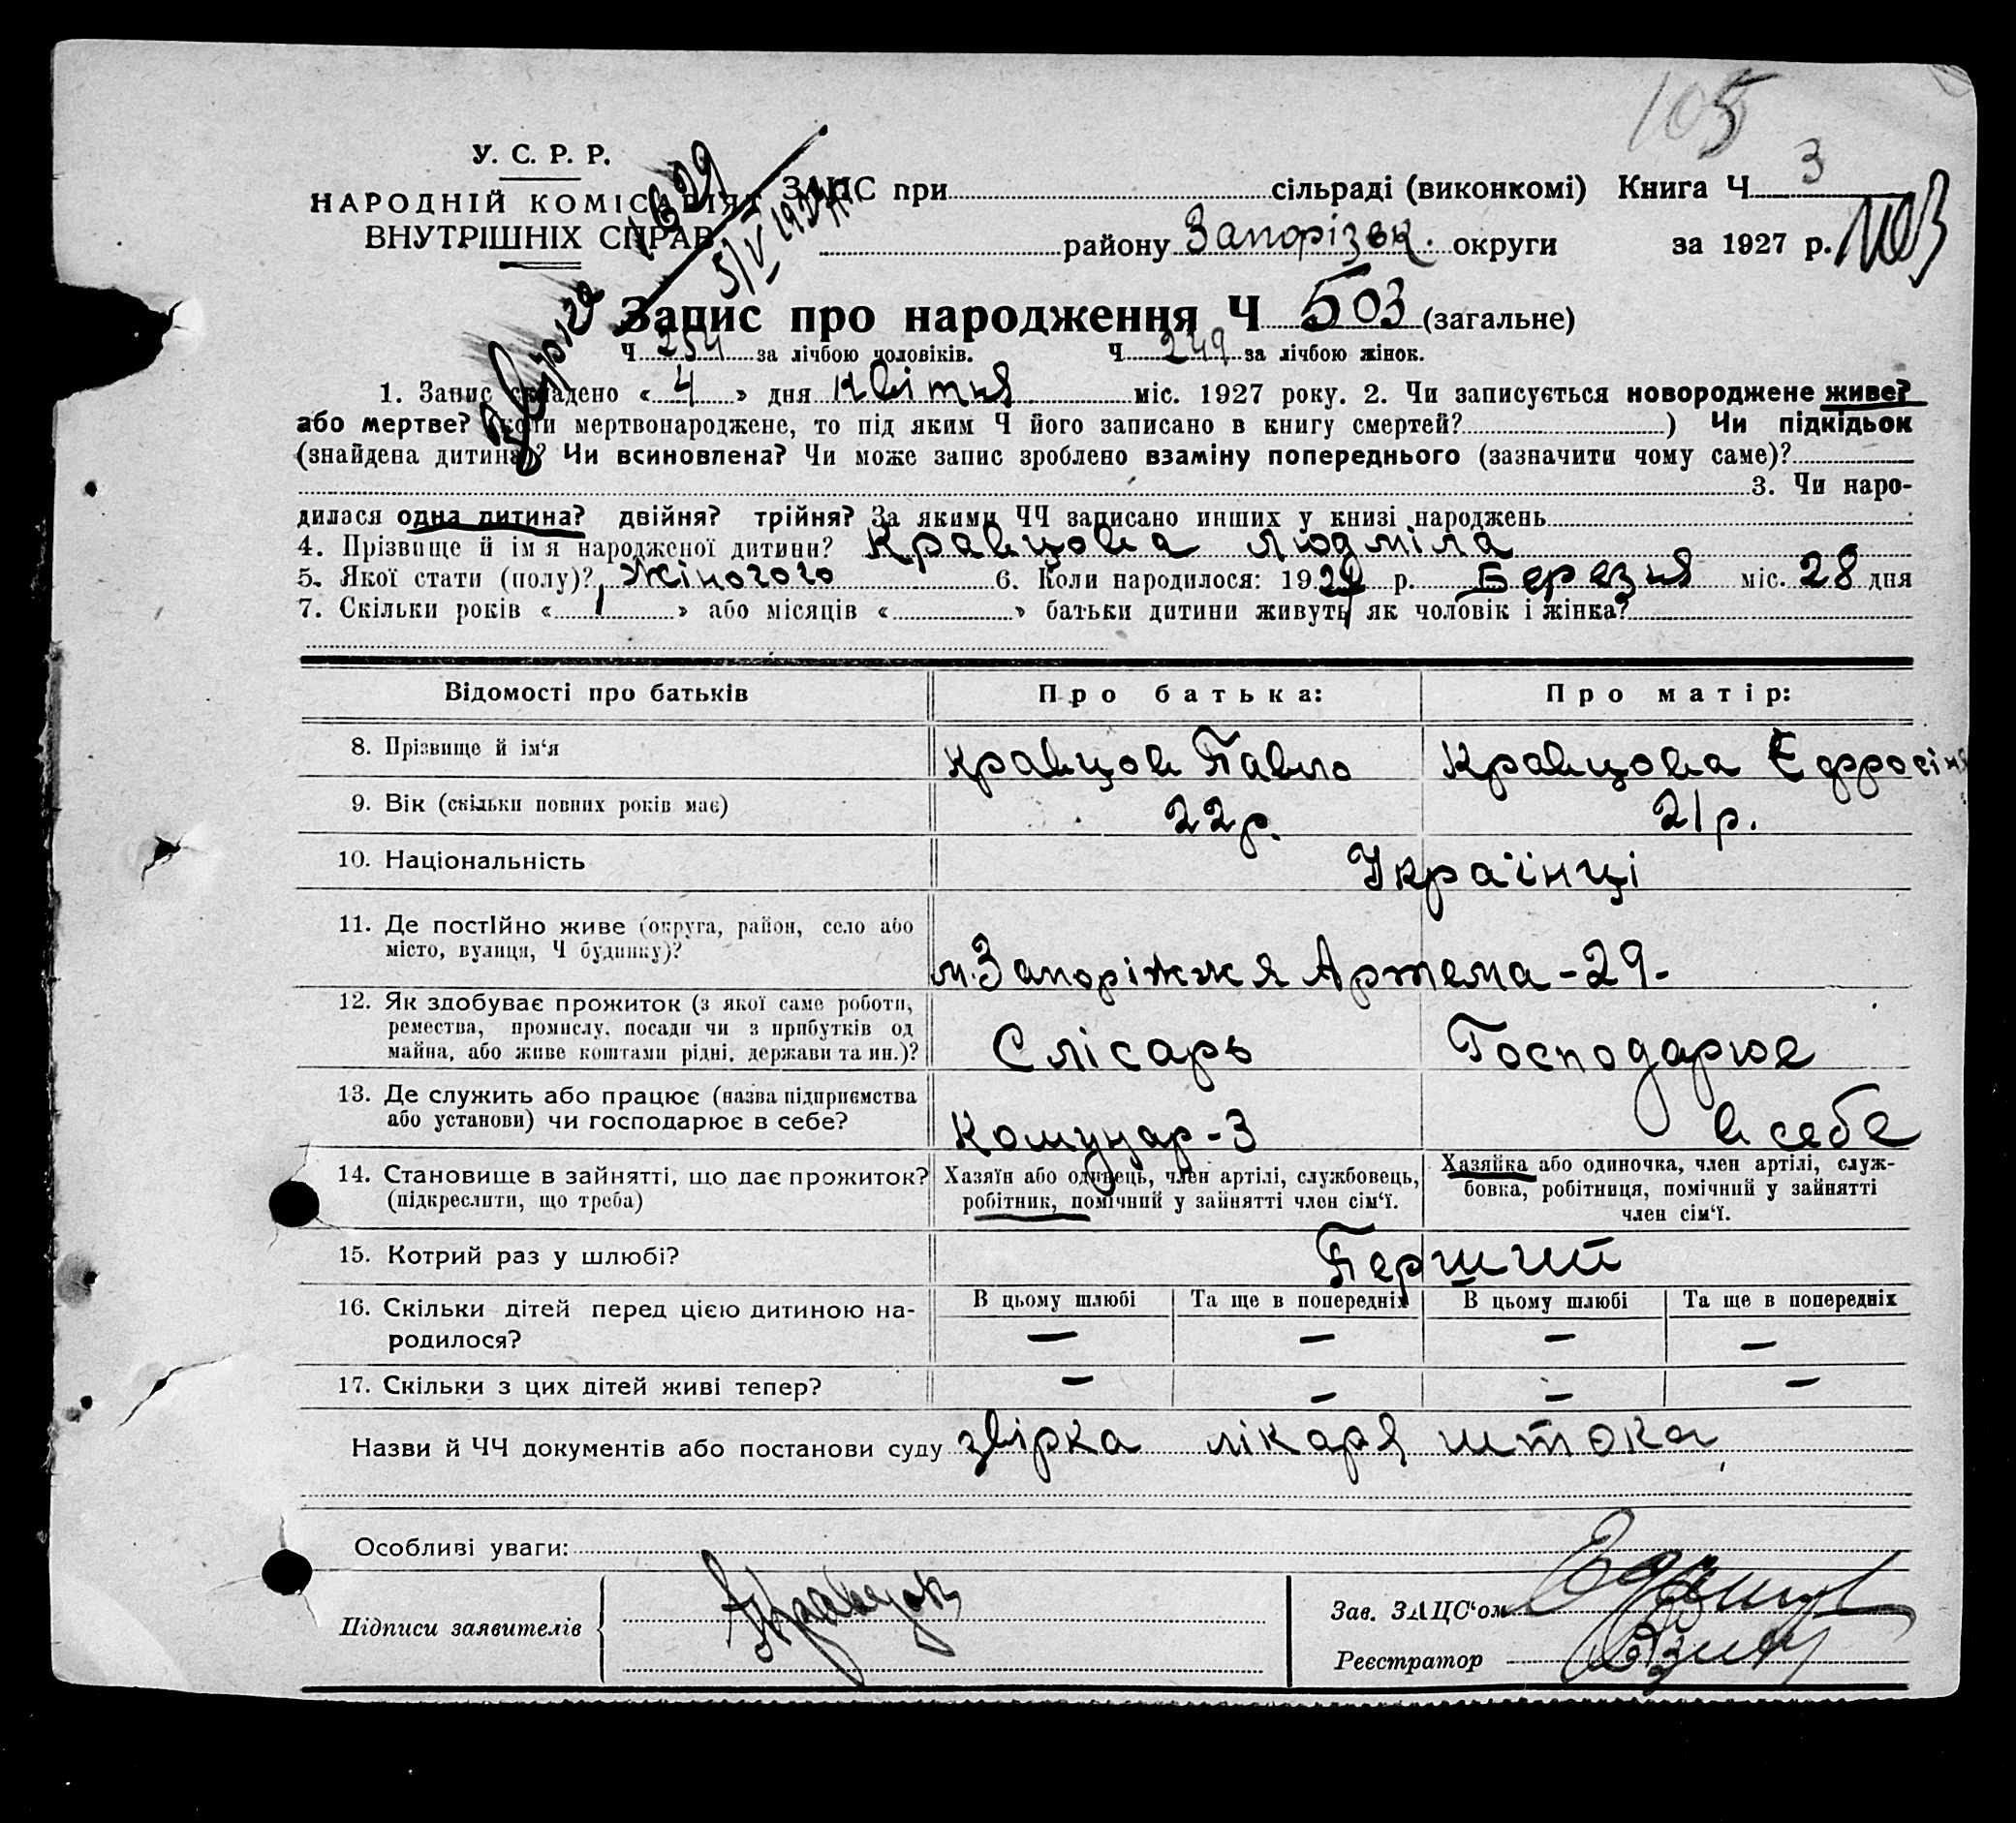 105
У. С. Р. Р.
НАРОДНІЙ КОМІСАРІЯТ
ВНУТРІШНІХ СПРАВ
ЗАПИС при сільраді (виконкомі) Книга Ч 3
району Запорізьк. округи за 1927 р.
1629
5/V 1927
Запис про народження Ч 503 (загальне)
Ч 254 за лічбою чоловіків. Ч 249 за лічбою жінок.
1. Запис складено « 4 » дня квітня міс. 1927 року. 2. Чи записується новороджене живе?
або мертве? (коли мертвонароджене, то під яким Ч його записано в книгу смертей? ) Чи підкідьок
(знайдена дитина)? Чи всиновлена? Чи може запис зроблено взаміну попереднього (зазначити чому саме)?
3. Чи наро-
дилася одна дитина? двійня? трійня? За якими ЧЧ записано инших у книзі народжень
4. Прізвище й ім'я народженої дитини? Кравцова Людміла
5. Якої стати (полу)? Жіночого 6. Коли народилося: 1927 р. Березня міс. 28 дня
7. Скільки років « 1 » або місяців « » батьки дитини живуть як чоловік і жінка?
Відомості про батьків Про батька: Про матір:
8. Прізвище й ім'я Кравцов Павло Кравцова Єфросіня
9. Вік (скільки повних років має) 22 р. 21 р.
10. Національність Українці
11. Де постійно живе (округа, район, село або
місто, вулиця, Ч будинку)? м. Запоріжжя Артема - 29 -
12. Як здобуває прожиток (з якої саме роботи,
ремества, промислу, посади чи з прибутків од
майна, або живе коштами рідні, держави та ин.)? Слісарь Господарює
13. Де служить або працює (назва підприємства
або установи) чи господарює в себе? Комунар - 3 в себе
14. Становище в зайнятті, що дає прожиток?
(підкреслити, що треба)
Хазяїн або одинець, член артілі, службовець,
робітник, помічний у зайнятті член сім'ї.
Хазяйка або одиночка, член артілі, служ-
бовка, робітниця, помічний у зайнятті
член сім'ї.
15. Котрий раз у шлюбі? Перший
16. Скільки дітей перед цією дитиною на-
родилося?
В цьому шлюбі Та ще в попередніх В цьому шлюбі Та ще в попередніх
— — — —
17. Скільки з цих дітей живі тепер? — — — —
Назви й ЧЧ документів або постанови суду звірка лікаря штока
Особливі уваги:
Підписи заявителів Кравцов
Зав. ЗАЦС'ом
Реєстратор